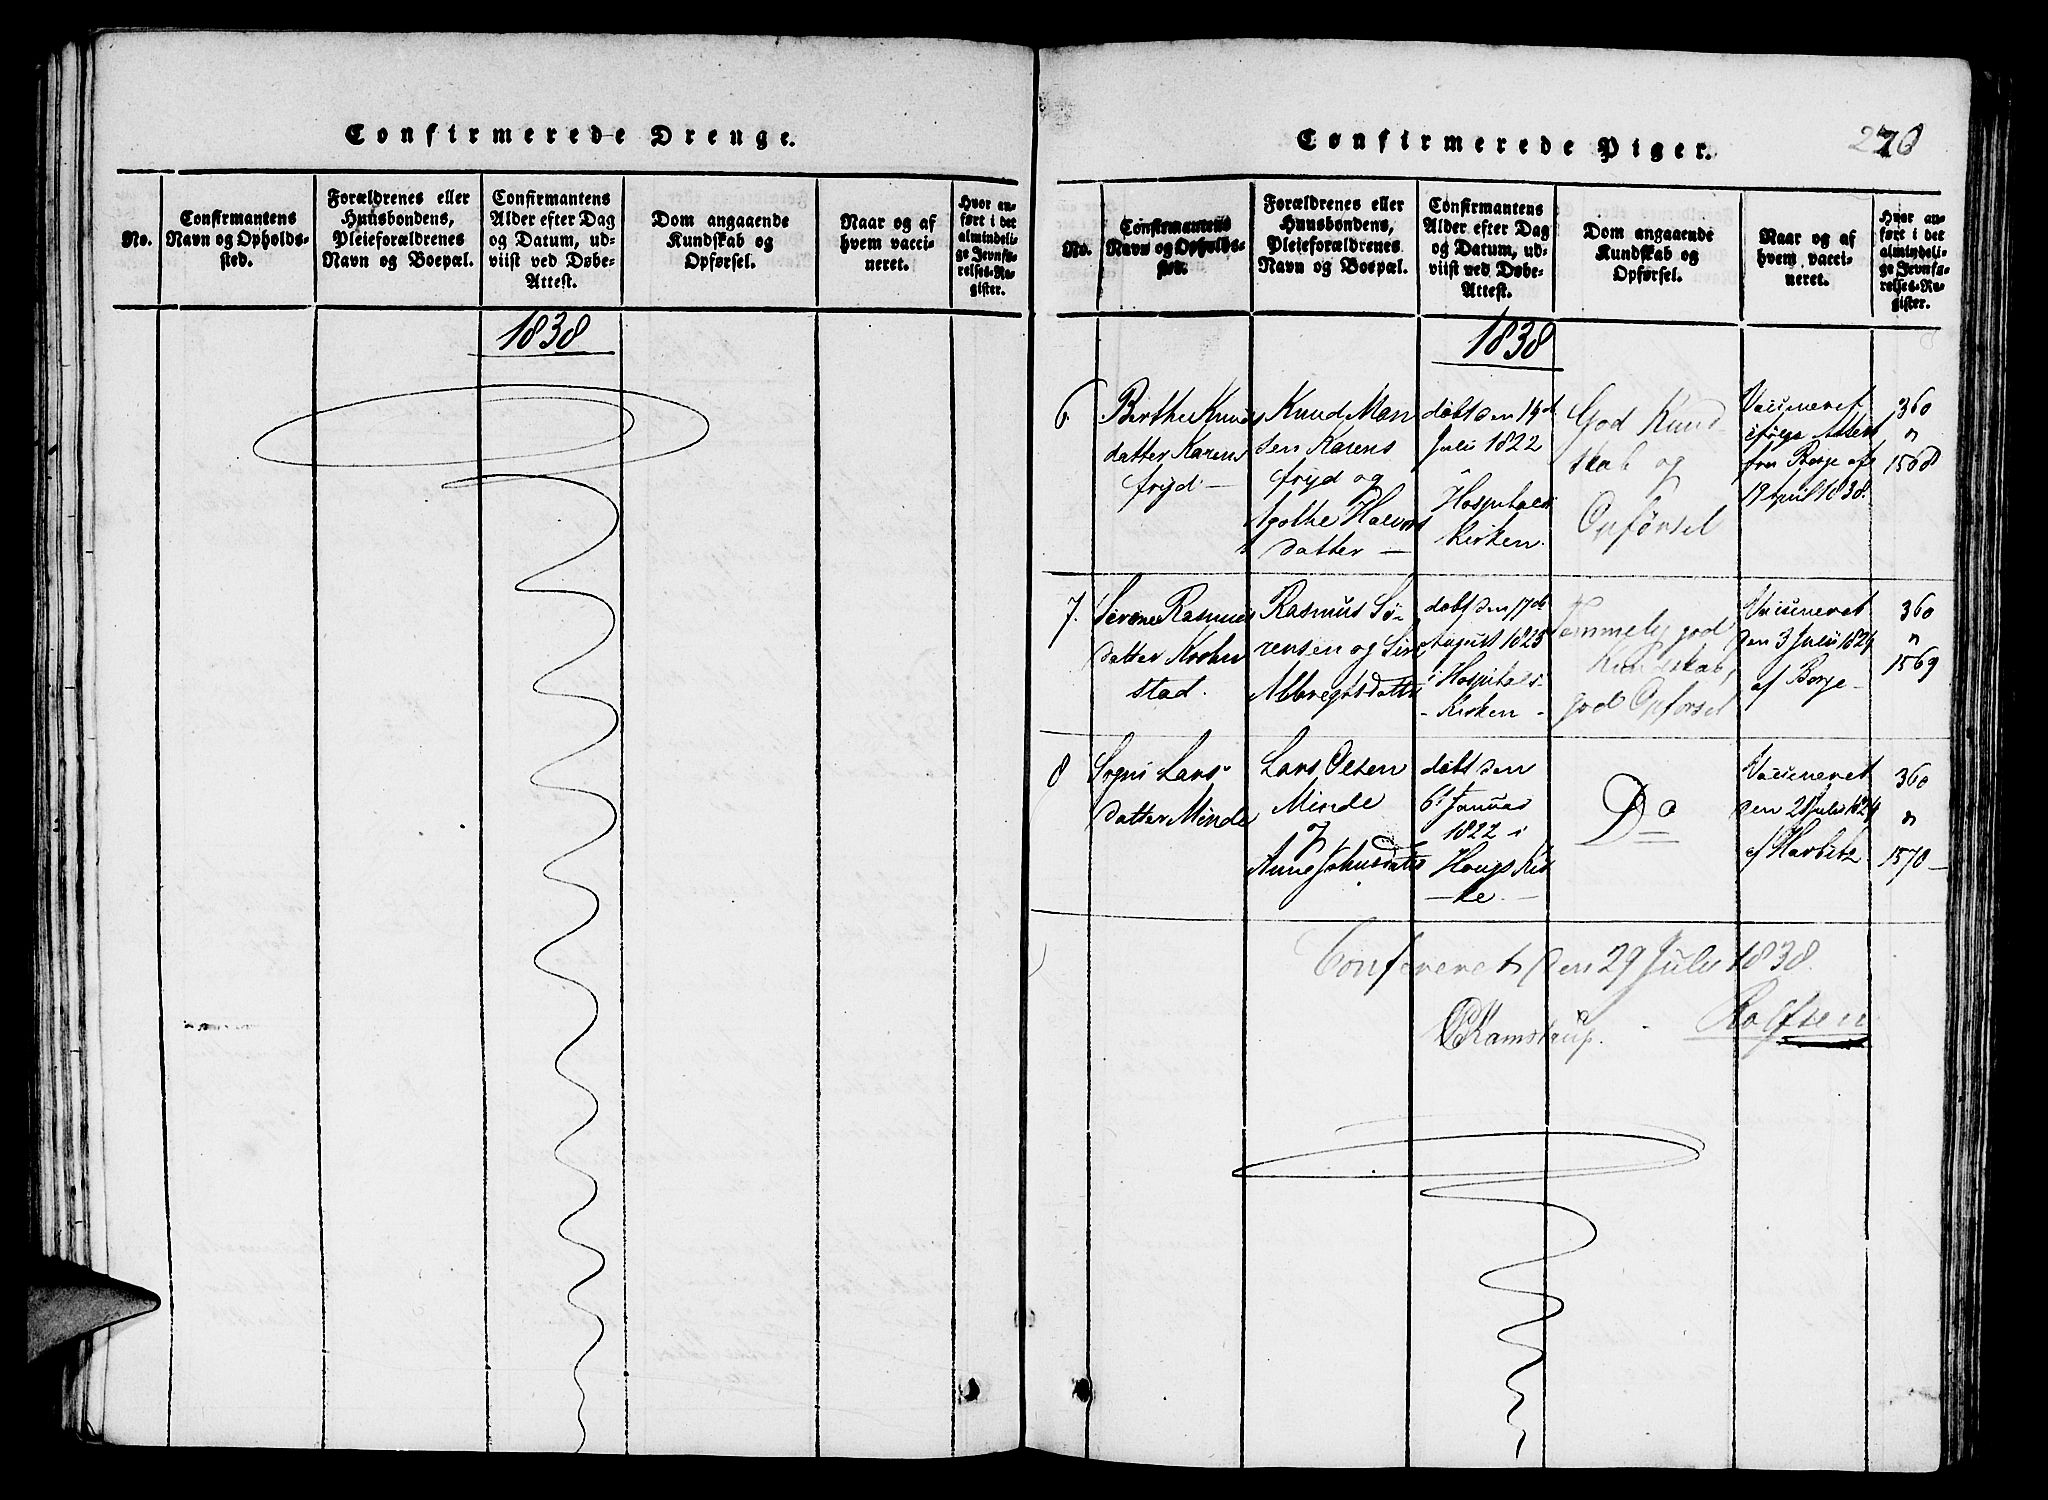 Confirmerede Drenge.
No.
Confirmantens
Navn og Opholds-
sted.
Forældrenes eller
Huusbondens,
Pleieforældrenes
Navn og Boepæl.
Confirmantens
Alder efter Dag
og Datum, ud-
viist ved Døbe-
Attest.
Dom angaaende
Kundskab og
Opførsel.
Naar og af
hvem vacci-
neret.
Hvor an-
ført i det
almindeli-
ge Jevnfø-
relses-Re-
gister.
1838
Confirmerede Piger.
270
No.
Confirmantens
Navn og Opholds-
sted.
Forældrenes eller
Huusbondens,
Pleieforældrenes
Navn og Boepæl.
Confirmantens
Alder efter Dag
og Datum, ud-
viist ved Døbe-
Attest.
Dom angaaende
Kundskab og
Opførsel.
Naar og af
hvem vacci-
neret.
Hvor an-
ført i det
almindeli-
ge Jevnfø-
relses-Re-
gister.
1838
6
Berthe Knuds
datter Karens
fryd —
Knud Mon
sen Karens
fryd og
Agothe Halvors
datter —
døbt den 14d
Juli 1822
Hospitals
Kirken.
God Kund-
skab og
Opførsel
Vaccineret
ifølge Attest
fra Borge af
19 April 1838.
360
"
1568
7.
Serene Rasmus
datter Krohn
stad.
Rasmus Sø-
rensen og Siri
Albregtsdatter
døbt den 17de
August 1823
i Hospitals-
- Kirken -
Temmelig god
Kundskab,
god Opførsel
Vaccineret
den 3 Juli 1824
af Borge -
360
"
1569
8
Signi Lars-
datter Minde
Lars Olsen
Minde
og
Anne Johnsdatter
døbt den
6t Januar
1822 i
Hougs Kir
— ke. —
Do
Vaccineret
den 21 Juli 1824
af Harbitz
360
"
1570 -
Confereret den 29 Juli 1838.
CRamstrup. Rolfsen